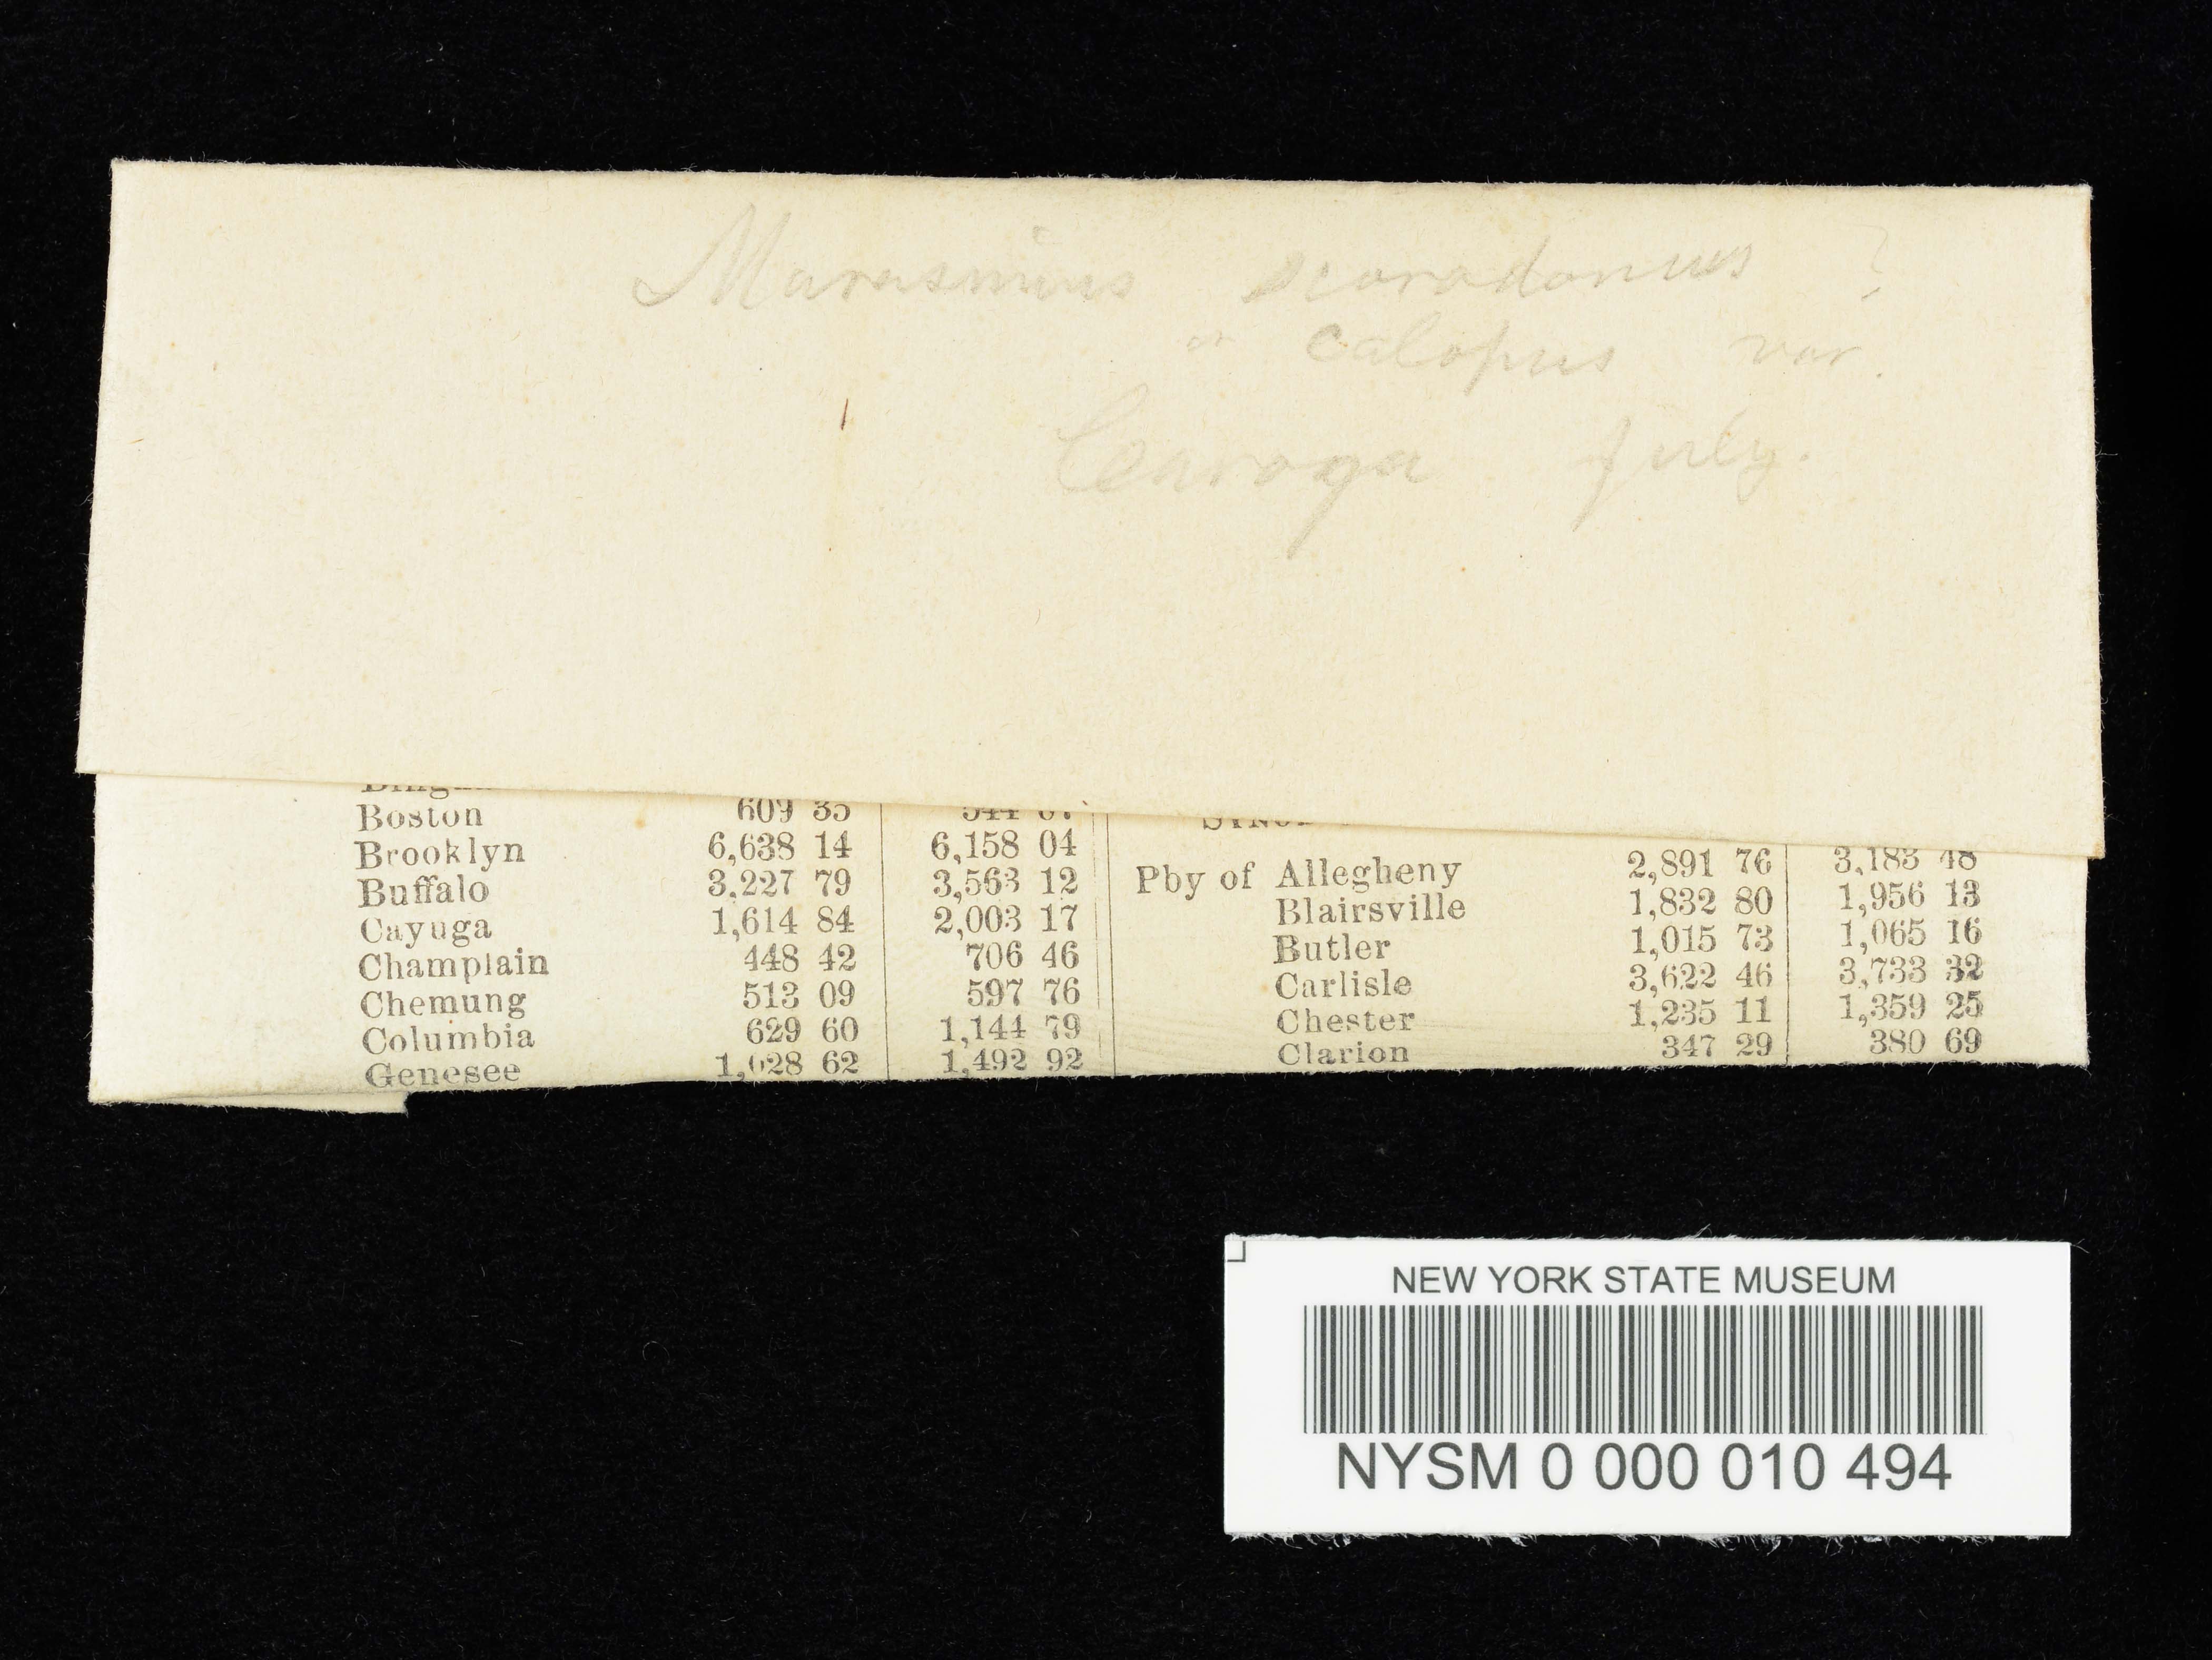 Marasmius scorodonius ?
or calopus var.
Caroga July.
Boston 609 35
Brooklyn 6,638 14 6,158 04
Buffalo 3,227 79 3,563 12
Cayuga 1,614 84 2,003 17
Champlain 448 42 706 46
Chemung 513 09 597 76
Columbia 629 60 1,144 79
Genesee 1,028 62 1,492 92
Pby of Allegheny 2,891 76 3,183 48
Blairsville 1,832 80 1,956 13
Butler 1,015 73 1,065 16
Carlisle 3,622 46 3,733 32
Chester 1,235 11 1,359 25
Clarion 347 29 380 69
NEW YORK STATE MUSEUM
NYSM 0 000 010 494